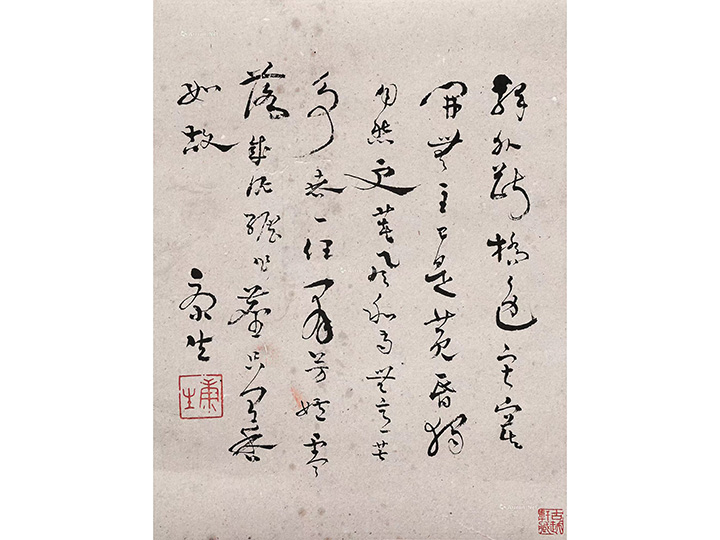 驛外斷橋邊寂寞
開無主已是黃昏獨
自愁更著風和雨無意苦
爭春一任羣芳妒零
落成泥碾作塵只有香
如故
康生
康生